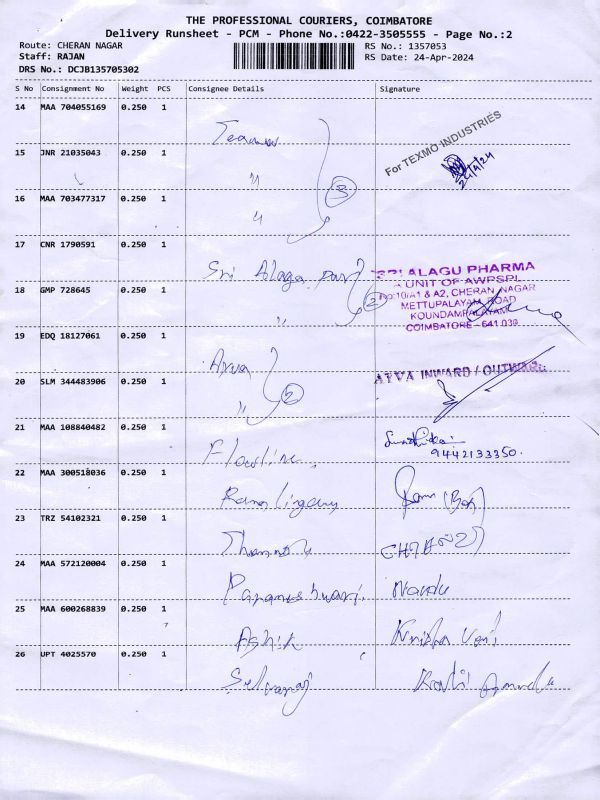 THE PROFESSIONAL COURIERS, COIMBATORE
Delivery Runsheet - PCM - Phone No.:0422-3505555 - Page No.:2
Route: CHERAN NAGAR
RS No.: 1357053
Staff: RAJAN
RS Date: 24-Apr-2024
DRS No.: DCJB135705302
S No Consignment No Weight PCS Consignee Details Signature
14 MAA 704055169 0.250 1
For TEXMO INDUSTRIES
15 JNR 21035043 0.250 1 " 24/4/24
3
16 MAA 703477317 0.250 1 "
17 CNR 1790591 0.250 1 Sri Alaga
SRI ALAGU PHARMA
A UNIT OF AWPSPL
No:10/A1 & A2, CHERAN NAGAR
METTUPALAYAM ROAD
KOUNDAMPALAYAM
COIMBATORE - 641 030
18 GMP 728645 0.250 1 " 2
19 EDQ 18127061 0.250 1 Ayva
AYVA INWARD / OUTWARD
20 SLM 344483906 0.250 1 " 2
21 MAA 108840482 0.250 1 Flowline
9442133350.
22 MAA 300518036 0.250 1 Ramalingam
23 TRZ 54102321 0.250 1
24 MAA 572120004 0.250 1 Parameshwari
25 MAA 600268839 0.250 1 Ashik Krishna Veni
26 UPT 4025570 0.250 1 Selvaraj